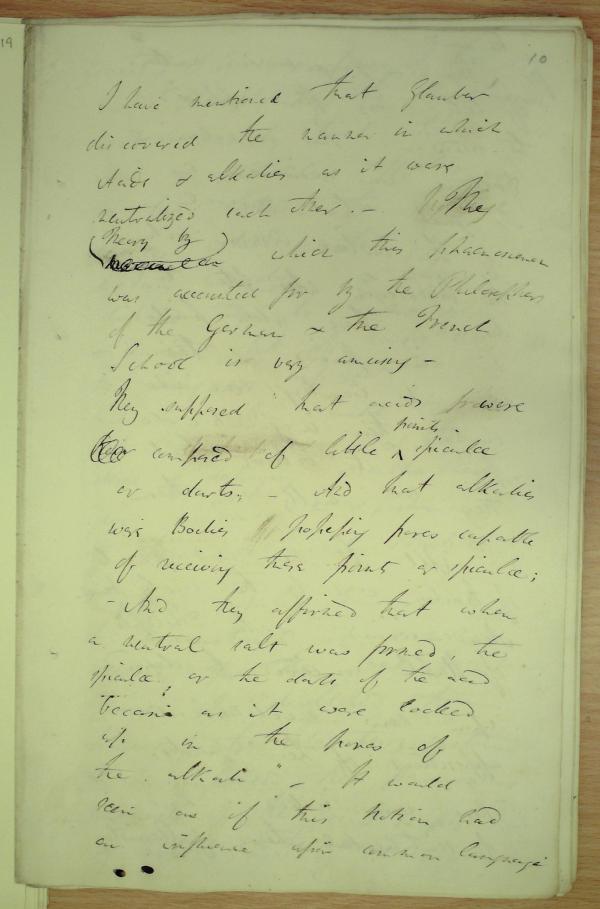 19
10
I have mentioned that Glauber
discovered the manner in which
Acids & alkalies as it were
neutralized each other. – They
(Theory by) which this phaenomenon
was accounted for by the Philosophers
of the German & the French
School is very amusing –
They supposed "that acids were
composed of little points spiculae
or darts, – And that alkalies
were Bodies possessing pores capable
of receiving these points or spiculae;
– And they affirmed that when
a neutral salt was formed, the
spiculae, or the darts of the acid
became as it were locked
up in the pores of
the alkali" – It would
seem as if this Notion had
an influence upon common language